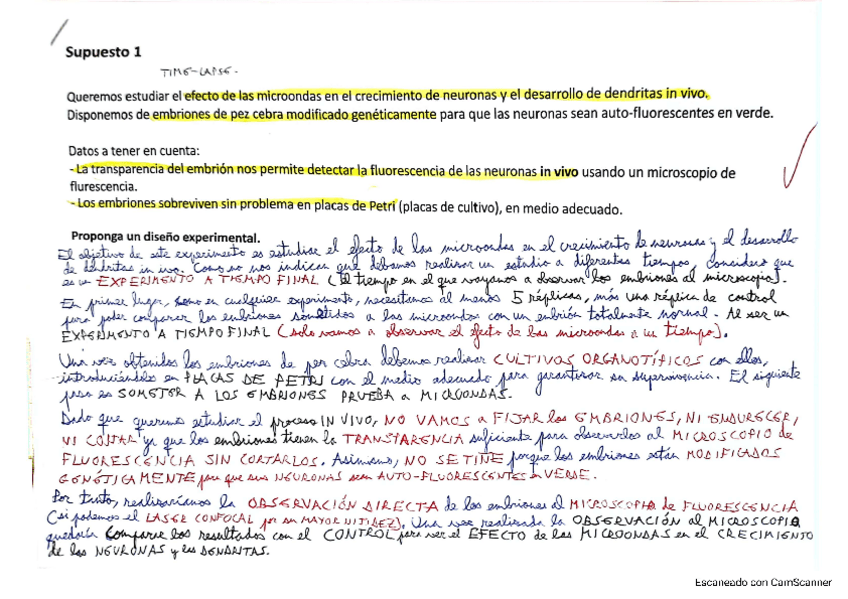 Supuesto 1
TIME-LAPSE.
Queremos estudiar el efecto de las microondas en el crecimiento de neuronas y el desarrollo de dendritas in vivo.
Disponemos de embriones de pez cebra modificado genéticamente para que las neuronas sean auto-fluorescentes en verde.
Datos a tener en cuenta:
- La transparencia del embrión nos permite detectar la fluorescencia de las neuronas in vivo usando un microscopio de
flurescencia.
- Los embriones sobreviven sin problema en placas de Petri (placas de cultivo), en medio adecuado.
Proponga un diseño experimental.
El objetivo de este experimento es estudiar el efecto de las microondas en el crecimiento de neuronas y el desarrollo
de dendritas in vivo. Como no nos indican que debamos realizar un estudio a diferentes tiempos, considero que
es un EXPERIMENTO A TIEMPO FINAL (El tiempo en el que vayamos a observar los embriones al microscopio).
En primer lugar, como en cualquier experimento, necesitamos al menos 5 réplicas, más una réplica de control
para poder comparar los embriones sometidos a las microondas con un embrión totalmente normal. Al ser un
EXPERIMENTO A TIEMPO FINAL (solo vamos a observar el efecto de las microondas a un tiempo).
Una vez obtenidos los embriones de pez cebra debemos realizar CULTIVOS ORGANOTÍFICOS con ellos,
introduciéndolos en PLACAS DE PETRI con el medio adecuado para garantizar su supervivencia. El siguiente
paso es SOMETER A LOS EMBRIONES PRUEBA A MICROONDAS.
Dado que queremos estudiar el proceso IN VIVO, NO VAMOS a FIJAR los EMBRIONES, NI ENDURECER,
NI CORTAR ya que los embriones tienen la TRANSPARENCIA suficiente para observarlos al MICROSCOPIO de
FLUORESCENCIA SIN CORTARLOS. Asimismo, NO SE TIÑE porque los embriones están MODIFICADOS
GENÉTICAMENTE para que sus NEURONAS sean AUTO-FLUORESCENTES en VERDE.
Por tanto, realizaríamos la OBSERVACIÓN DIRECTA de los embriones al MICROSCOPIO de FLUORESCENCIA
(si podemos el LASER CONFOCAL por su MAYOR NITIDEZ). Una vez realizada la OBSERVACIÓN al MICROSCOPIO
quedaría comparar los resultados con el CONTROL para ver el EFECTO de las MICROONDAS en el CRECIMIENTO
de las NEURONAS y las DENDRITAS.
Escaneado con CamScanner